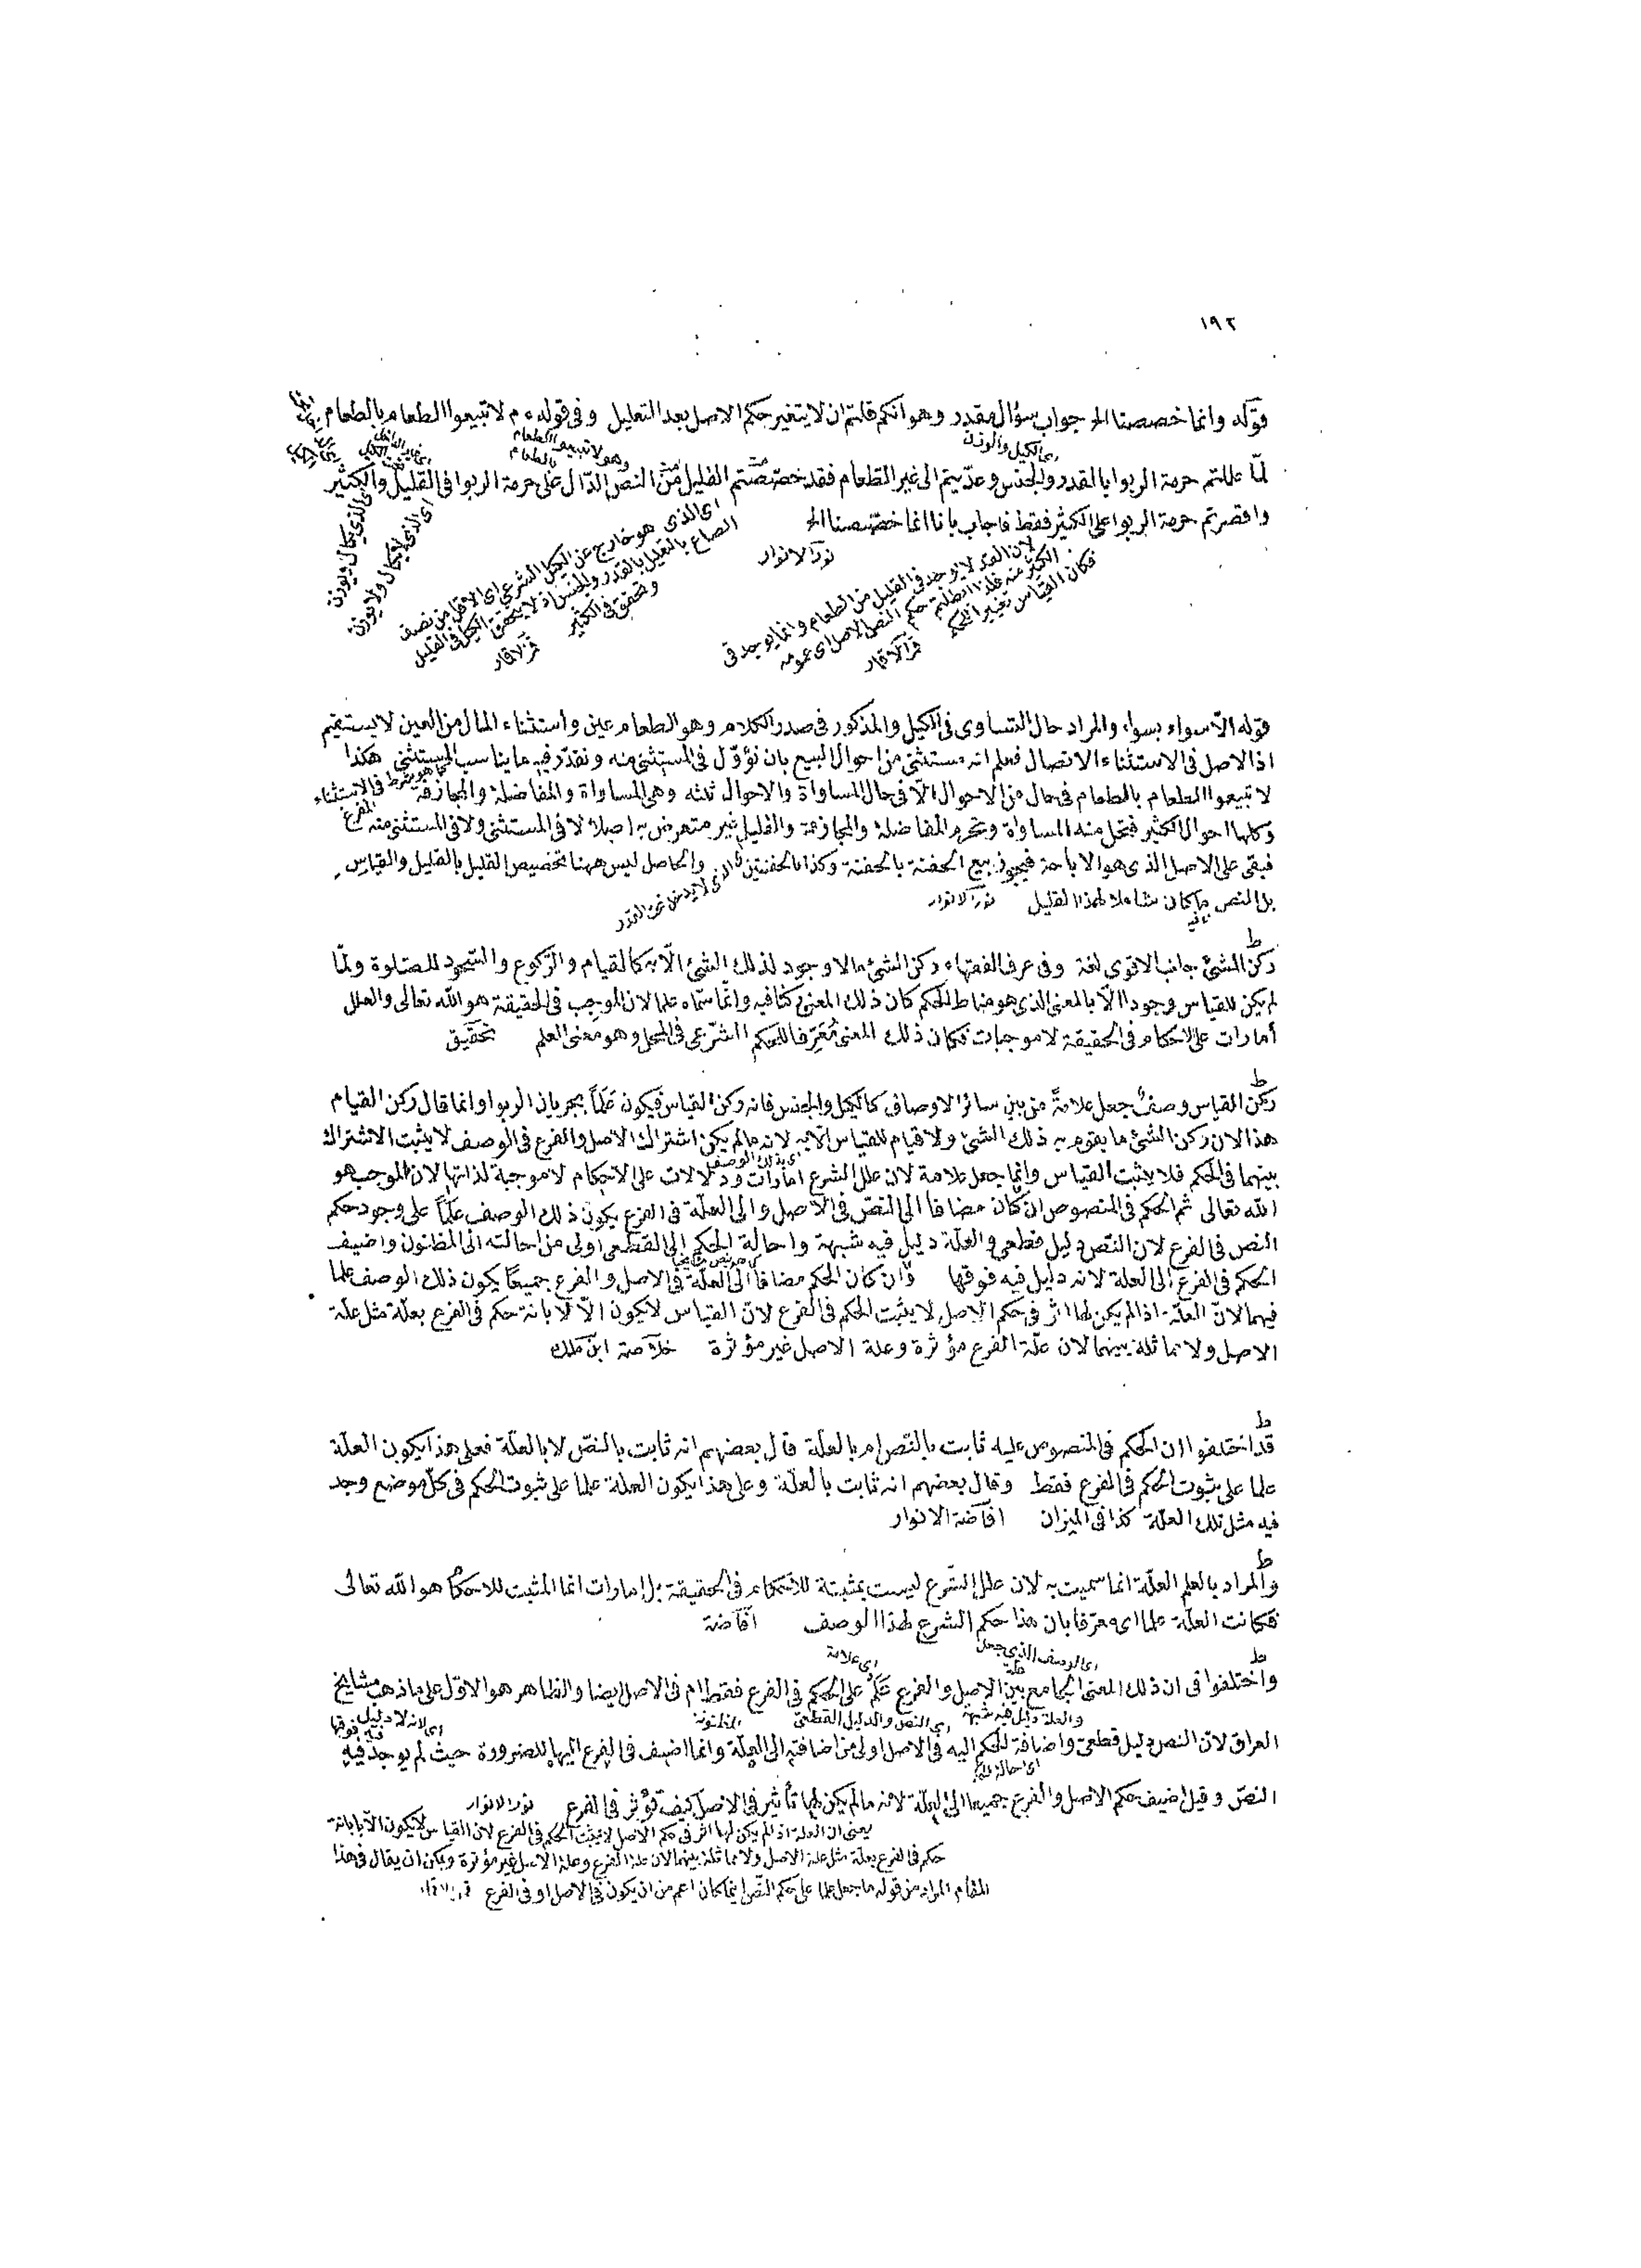 ١٩٢
قوله وانما خصصنا الخ جواب سؤال مقدر وهو انكم قلتم ان لا يتغير حكم الاصل بعد التعليل وفى قوله ءم لا تبيعوا الطعام بالطعام
اى الكيل والوزن
وهو لا تبيعوا الطعام بالطعام
لمّا عللتم حرمة الربوا بالقدر والجنس وعدّيتم الى غير الطعام فقد خصّصتم القليل من النص الدّال على حرمة الربوا فى القليل والكثير
واقصرتم حرمة الربوا على الكثير فقط فاجاب بانا انما خصّصنا الخ
نور الانوار
اى الذى يكال ويوزن
اى الذى لا يكال ولا يوزن
اى الذى هو خارج عن الكيل الشرعى اى الاقل من نصف
الصاع بالتعليل بالقدر والجنس اذ لا يتحقق الكيل فى القليل
وتحقق فى الكثير
قمر الاقمار
لان القدر لا يوجد فى القليل من الطعام وانما يوجد فى
الكثير منه فلذا ابطلتم حكم النص الاصل اى عمومه
فكان القياس تغيير الحكم
قمر الاقمار
قوله الّا سواء بسواء والمراد حال التساوى فى الكيل والمذكور فى صدر الكلام وهو الطعام عين واستثناء الحال من العين لا يستقيم
اذ الاصل فى الاستثناء الاتصال فعلم انه مستثنى من احوال البيع بان نؤوّل فى المستثنى منه ونقدّر فيه ما يناسب المستثنى هكذا
كما هو شرط فى الاستثناء المفرغ
لا تبيعوا الطعام بالطعام فى حال من الاحوال الّا فى حال المساواة والاحوال ثلثه وهى المساواة والمفاضلة والمجازفة
وكلها احوال الكثير فتحل منه المساواة وتحرم المفاضلة والمجازفة والقليل غير متعرض به اصلا لا فى المستثنى ولا فى المستثنى منه
فبقى على الاصل الذى هو الاباحة فيجوز بيع الحفنة بالحفنة وكذا بالحفنتين والحاصل ليس ههنا تخصيص القليل بالقليل والقياس
بل النص ما كان شاملا لهذا القليل نور الانوار
ركن الشئ جانب الاقوى لغة وفى عرف الفقهاء ركن الشئ ما لا وجود لذلك الشئ الّا به كالقيام والرّكوع والسّجود للصلوة ولمّا
لم يكن للقياس وجود الّا بالمعنى الذى هو مناط الحكم كان ذلك المعنى ركنا فيه وانّما سمّاه علما لان الموجب فى الحقيقة هو الله تعالى والعلل
أمارات على الاحكام فى الحقيقة لا موجبات فكان ذلك المعنى مُعَرِّفا للحكم الشّرعى فى المحل وهو معنى العلم تحقيق
ركن القياس وصفٌ جعل علامةً من بين سائر الاوصاف كالكيل والجنس فانه ركن القياس فيكون عَلَماً بجريان الربوا وانما قال ركن القيام
هذا لان ركن الشئ ما يقوم به ذلك الشئ ولا قيام للقياس الّا به لانه مالم يكن اشتراك الاصل والفرع فى الوصف لا يثبت الاشتراك
اى بذلك الوصف
بينهما فى الحكم فلا يثبت القياس وانّما جعل علامة لان علل الشرع امارات ودلالات على الاحكام لا موجبة لذاتها لان الموجب هو
الله تعالى ثم الحكم فى المنصوص ان كان مضافا الى النصّ فى الاصل والى العلّة فى الفرع يكون ذلك الوصف علماً على وجود حكم
النص فى الفرع لان النصّ دليل قطعى والعلّة دليل فيه شبهة واحالة الحكم الى القطعى اولى من احالته الى المظنون واضيف
الحكم فى الفرع الى العلة لانه دليل فيه فوقها وان كان الحكم مضافا الى العلّة فى الاصل والفرع جميعًا يكون ذلك الوصف علما
فيهما لانّ العلّة اذا لم يكن لها اثر فى حكم الاصل لا يثبت الحكم فى الفرع لانّ القياس لا يكون الّا لابانة حكم فى الفرع بعلّة مثل علّة
الاصل ولا مماثلة بينهما لان علّة الفرع مؤثرة وعلة الاصل غير مؤثرة خلاصة ابن ملك
قد اختلفوا ان الحكم فى المنصوص عليه ثابت بالنّص ام بالعلّة قال بعضهم انه ثابت بالنصّ لا بالعلّة فعلى هذا يكون العلّة
علما على ثبوت الحكم فى الفرع فقط وقال بعضهم انه ثابت بالعلّة وعلى هذا يكون العلة علما على ثبوت الحكم فى كلّ موضع وجد
فيه مثل تلك العلّة كذا فى الميزان افاضة الانوار
والمراد بالعلم العلّة انما سميت به لان علل الشّرع ليست بمثبتة للاحكام فى الحقيقة بل امارات انما المثبت للاحكام هو الله تعالى
فكانت العلّة علما اى معرّفا بان هذا حكم الشرع لهذا الوصف افاضة
اى الوصف الذى جعل علة
اى علامة
واختلفوا فى ان ذلك المعنى الجامع بين الاصل والفرع عَلَم على الحكم فى الفرع فقط ام فى الاصل ايضا والظاهر هو الاوّل على ما ذهب مشايخ
والعلة دليل فيه شبهة
اى النص والدليل القطعى
المظنونة
اى لانه لا دليل فيه فوقها
العراق لانّ النصّ دليل قطعىّ واضافة الحكم اليه فى الاصل اولى من اضافته الى العلّة وانما اضيف فى الفرع اليها للضرورة حيث لم يوجد فيه
النصّ وقيل اضيف حكم الاصل والفرع جميعا الى العلّة لانه مالم يكن لها تأثير فى الاصل كيف تؤثر فى الفرع نور الانوار
يعنى ان العلة اذا لم يكن لها اثر فى حكم الاصل لا يثبت الحكم فى الفرع لان القياس لا يكون الّا بابانة
حكم فى الفرع بعلّة مثل علة الاصل ولا مماثلة بينهما لان علة الفرع وعلة الاصل غير مؤثرة ويمكن ان يقال فى هذا
المقام المراد من قوله ما جعل علما على حكم النّص اينما كان اعم من ان يكون فى الاصل او فى الفرع